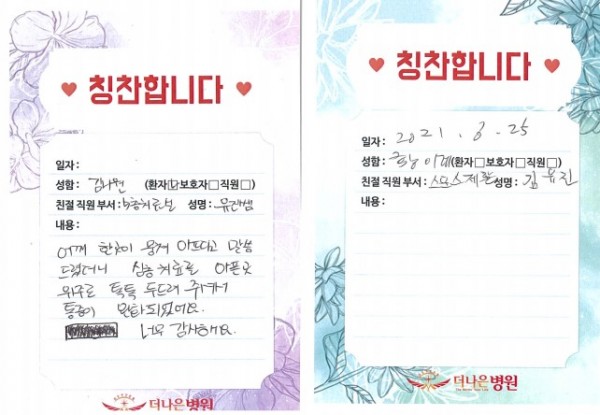 칭찬합니다
일자 :
성함 : 김나연 (환자 보호자 직원 )
친절 직원 부서 : 성명 : 유래쌤
내용 :
어깨 한곳이 뭉쳐 아프다고 말씀
드렸더니 심층치료로 아픈곳
위주로 톡톡 두드려 주셔서
통증이 완화되었어요.
너무 감사해요.
더나은병원
칭찬합니다
일자 : 2021. 3. 25
성함 : (환자 보호자 직원 )
친절 직원 부서 : 성명 : 김유진
내용 :
더나은병원